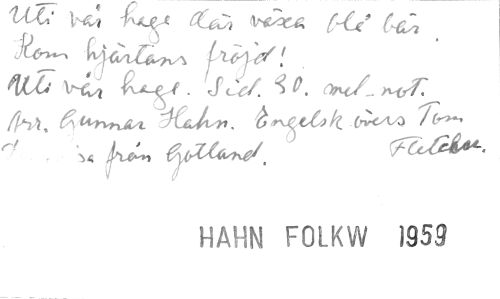 Uti vår hage där växa blå bär.
Kom hjärtans fröjd!
Uti vår hage. Sid. 30. mel-not.
Arr. Gunnar Hahn. Engelsk övers Tom
från Gotland. Fletcher.
HAHN FOLKW 1959